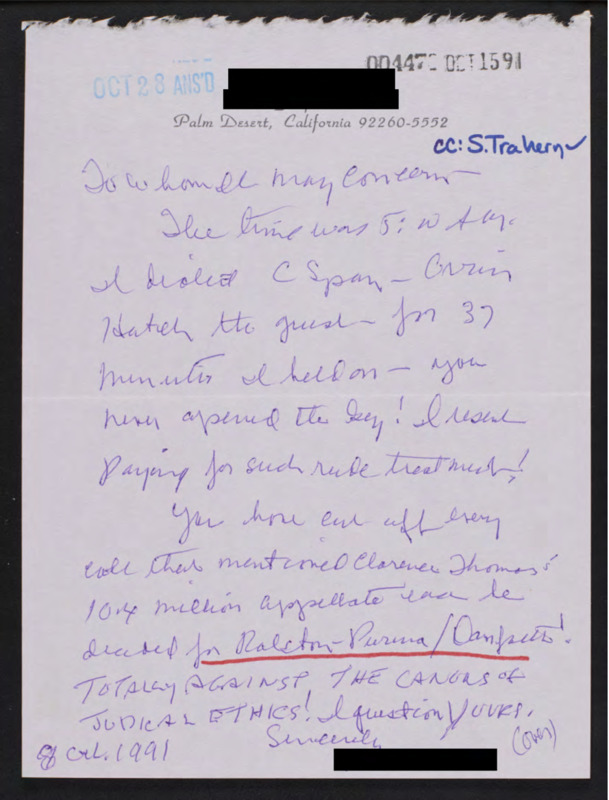 OCT 28 ANS'D
004473 OCT 15 91
Palm Desert, California 92260-5552
cc: S. Trahern
To Whom It May Concern —
The time was 5: A.M.
I dialed C Span — Orrin
Hatch the guest — for 37
minutes I held on — you
never opened the key! I resent
paying for such rude treatment!
You have cut off every
call that mentioned Clarence Thomas'
10.4 million appellate case he
decided for Ralston-Purina/Danforth!
TOTALLY AGAINST THE CANONS OF
JUDICAL ETHICS! I question YOURS.
Sincerely
8 Oct. 1991
(over)